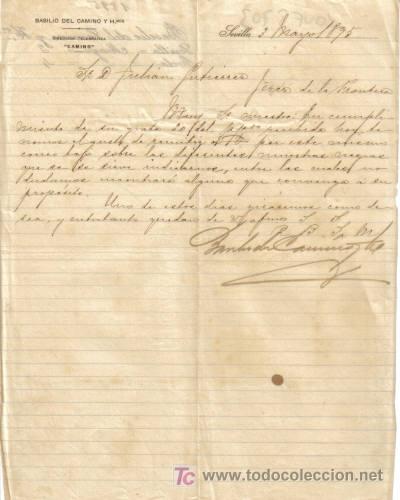 BASILIO DEL CAMINO Y H.NOS
DIRECCIÓN TELEGRÁFICA
"CAMINO"
Sevilla 3 Mayo 1895
Sr. D. Julian Gutierrez
Jerez de la Frontera
Muy Sr. nuestro: En cumpli
miento de su grata 20 del pdo recibida hoy, te
nemos el gusto de remitir a V. por este mismo
correo bajo sobre las diferentes muestras
que se sirve indicarnos, entre las cuales no
dudamos encontrará alguna que convenga á su
propósito.
Uno de estos dias giraremos como de
sea, y entretanto quedan de V. afmos S. S.
Q. B. S. M.
Basilio del Camino y Hs
TC
todocoleccion
www.todocoleccion.net